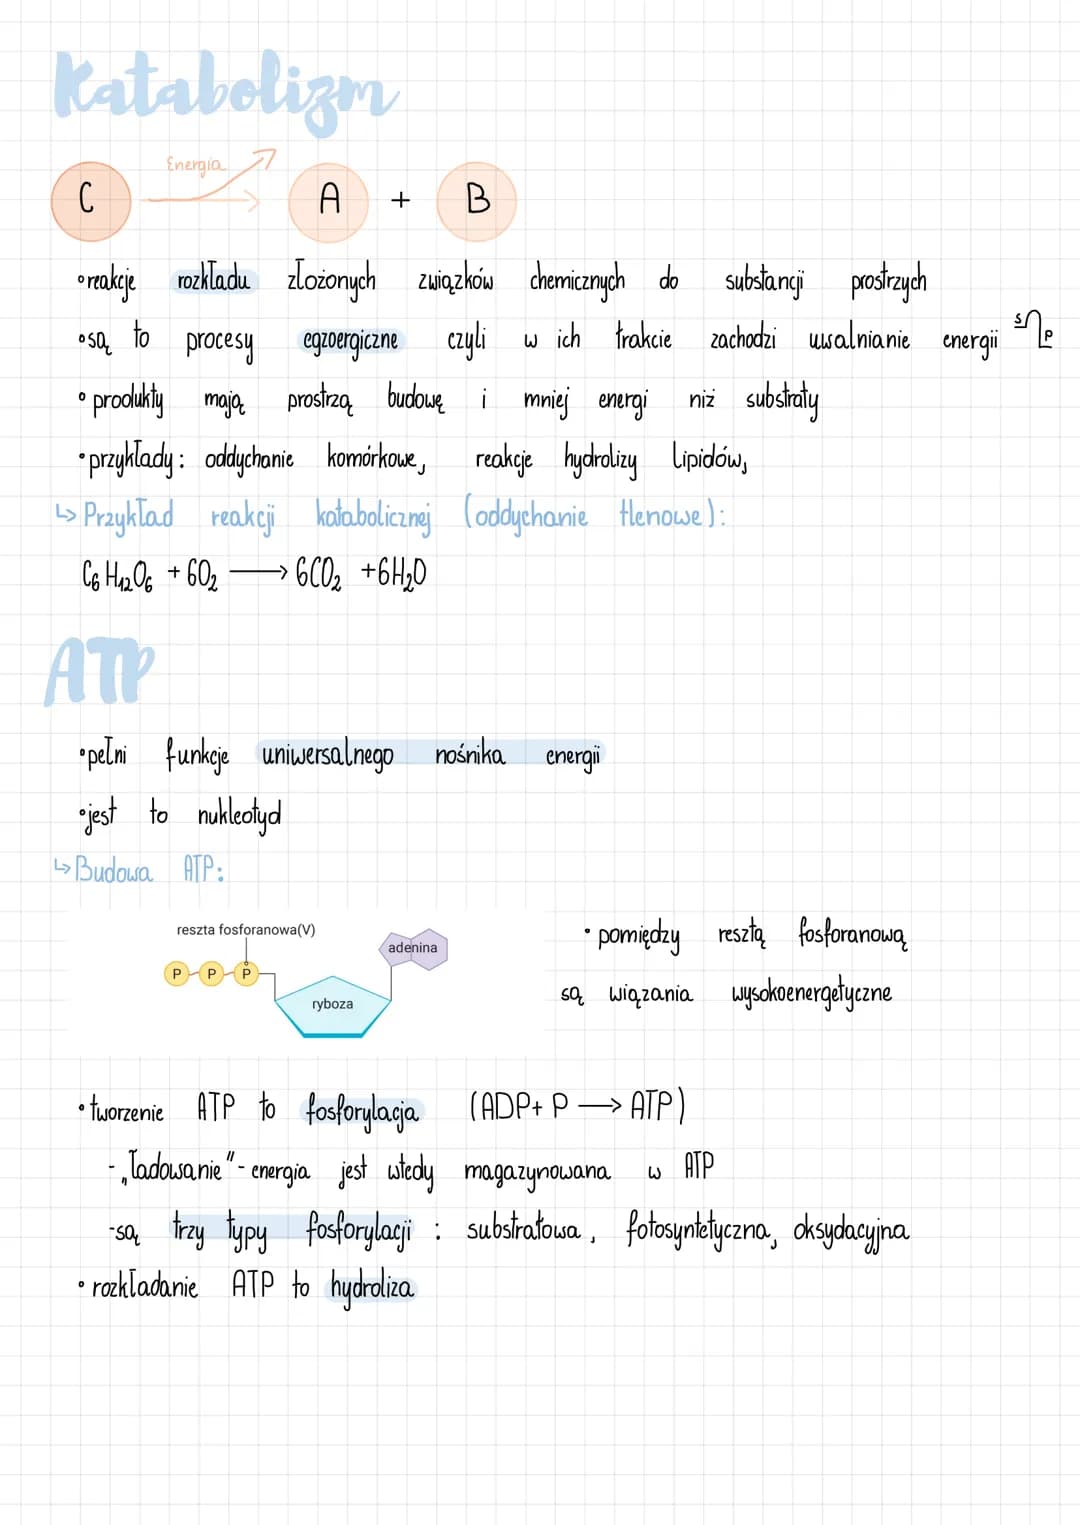 Katabolizm
Energia
C A + B
• reakcje rozkładu złożonych związków chemicznych do substancji prostrzych
• są to procesy egzoergiczne czyli w ich trakcie zachodzi uwalnianie energii S P
• produkty mają prostrzą budowę i mniej energi niż substraty
• przykłady: oddychanie komórkowe, reakcje hydrolizy lipidów,
↳ Przykład reakcji katabolicznej (oddychanie tlenowe):
C₆H₁₂O₆ + 6O₂ ⟶ 6CO₂ + 6H₂O
ATP
• pełni funkcje uniwersalnego nośnika energii
• jest to nukleotyd
↳ Budowa ATP:
reszta fosforanowa(V)
adenina
P P P
ryboza
• pomiędzy resztą fosforanową
są wiązania wysokoenergetyczne
• tworzenie ATP to fosforylacja (ADP + P ⟶ ATP)
- „ładowanie" - energia jest wtedy magazynowana w ATP
- są trzy typy fosforylacji : substratowa, fotosyntetyczna, oksydacyjna
• rozkładanie ATP to hydroliza